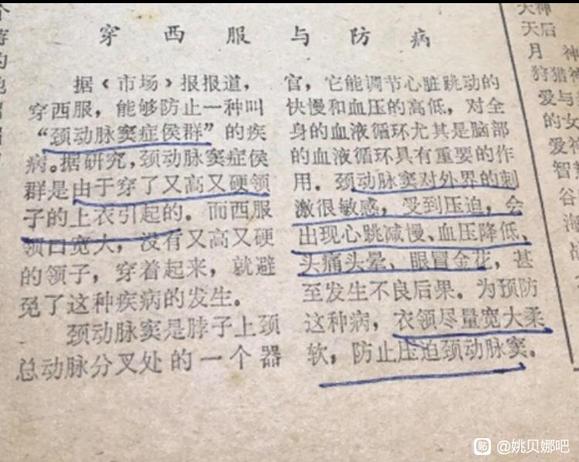 穿西服与防病
据《市场》报报道，
穿西服，能够防止一种叫
“颈动脉窦症侯群”的疾
病。据研究，颈动脉窦症侯
群是由于穿了又高又硬领
子的上衣引起的。而西服
领口宽大，没有又高又硬
的领子，穿着起来，就避
免了这种疾病的发生。
颈动脉窦是脖子上颈
总动脉分叉处的一个器
官，它能调节心脏跳动的
快慢和血压的高低，对全
身的血液循环尤其是脑部
的血液循环具有重要的作
用。颈动脉窦对外界的刺
激很敏感，受到压迫，会
出现心跳减慢、血压降低、
头痛头晕、眼冒金花，甚
至发生不良后果。为预防
这种病，衣领尽量宽大柔
软，防止压迫颈动脉窦。
天后
月 神
狩猎神
爱与
的女
爱神
智慧
谷
海
战
@姚贝娜吧